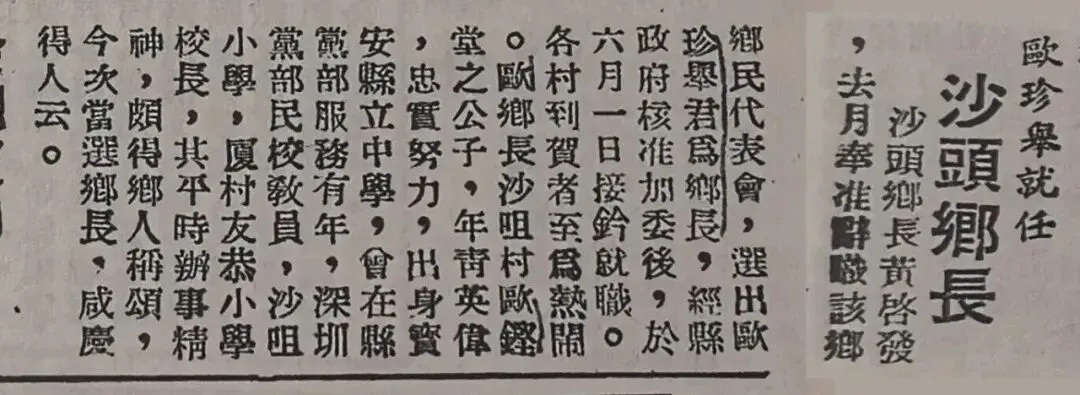 歐珍舉就任
沙頭鄉長
沙頭鄉長黃啓發
，去月奉准辭職該鄉
鄉民代表會，選出歐
珍舉君爲鄉長，經縣
政府核准加委後，於
六月一日接鈐就職。
各村到賀者至爲熱鬧
。歐鄉長沙咀村歐鏗
堂之公子，年靑英偉
，忠實努力，出身寳
安縣立中學，曾在縣
黨部服務有年，深圳
黨部民校敎員，沙咀
小學，厦村友恭小學
校長，其平時辦事精
神，頗得鄉人稱頌，
今次當選鄉長，咸慶
得人云。